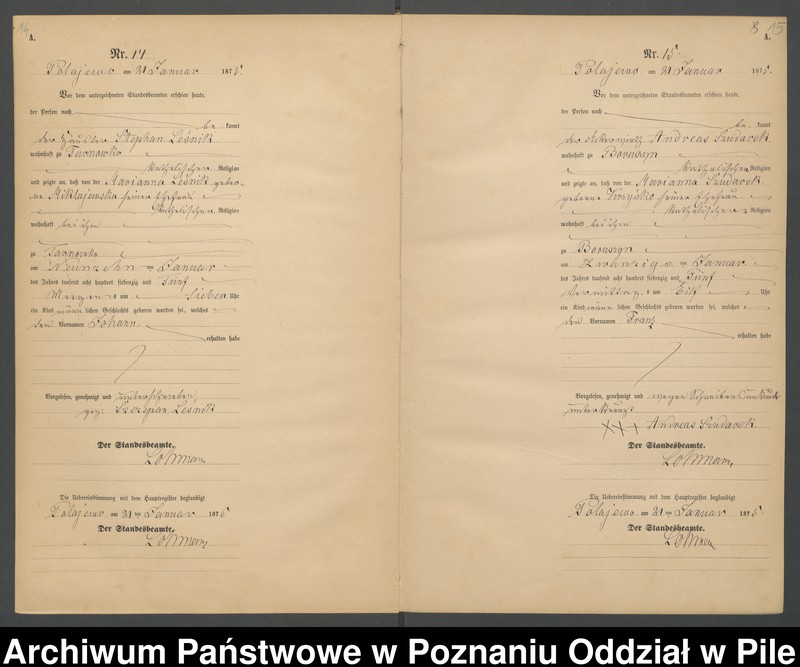 14
A.
Nr. 14
Polajewo am 21 Januar 1875.
Vor dem unterzeichneten Standesbeamten erschien heute,
der Person nach
be kannt
der Häusler Stephan Leśnik
wohnhaft zu Tarnowko
katholischer Religion
und zeigte an, daß von der Marianna Leśnik gebor-
ne Miklajewska seiner Ehefrau
katholischen Religion
wohnhaft bei ihm
zu Tarnowko
am Neunzehn ten Januar
des Jahres tausend acht hundert siebenzig und Fünf
Morgens um Sieben Uhr
ein Kind männ lichen Geschlechts geboren worden sei, welches
den Vornamen Johann
erhalten habe
Vorgelesen, genehmigt und unterschrieben
gez: Szczepan Lesnik
Der Standesbeamte.
Lohmann
Die Uebereinstimmung mit dem Hauptregister beglaubigt
Polajewo am 21 ten Januar 1875
Der Standesbeamte.
Lohmann
8 15
A.
Nr. 15
Polajewo am 21 Januar 1875.
Vor dem unterzeichneten Standesbeamten erschien heute,
der Person nach
be kannt
der Ackerwirth Andreas Szudarek
wohnhaft zu Boruszyn
katholischer Religion
und zeigte an, daß von der Marianna Szudarek
geborne seiner Ehefrau
katholischen Religion
wohnhaft bei ihm
zu Boruszyn
am Zwanzigsten Januar
des Jahres tausend acht hundert siebenzig und Fünf
Vormittag um Eilf Uhr
ein Kind männ lichen Geschlechts geboren worden sei, welches
den Vornamen Franz
erhalten habe
Vorgelesen, genehmigt und wegen Schreibensunkunde
unterkreuzt
XX+ Andreas Szudarek.
Der Standesbeamte.
Lohmann
Die Uebereinstimmung mit dem Hauptregister beglaubigt
Polajewo am 21 ten Januar 1875.
Der Standesbeamte.
Lohmann
Archiwum Państwowe w Poznaniu Oddział w Pile